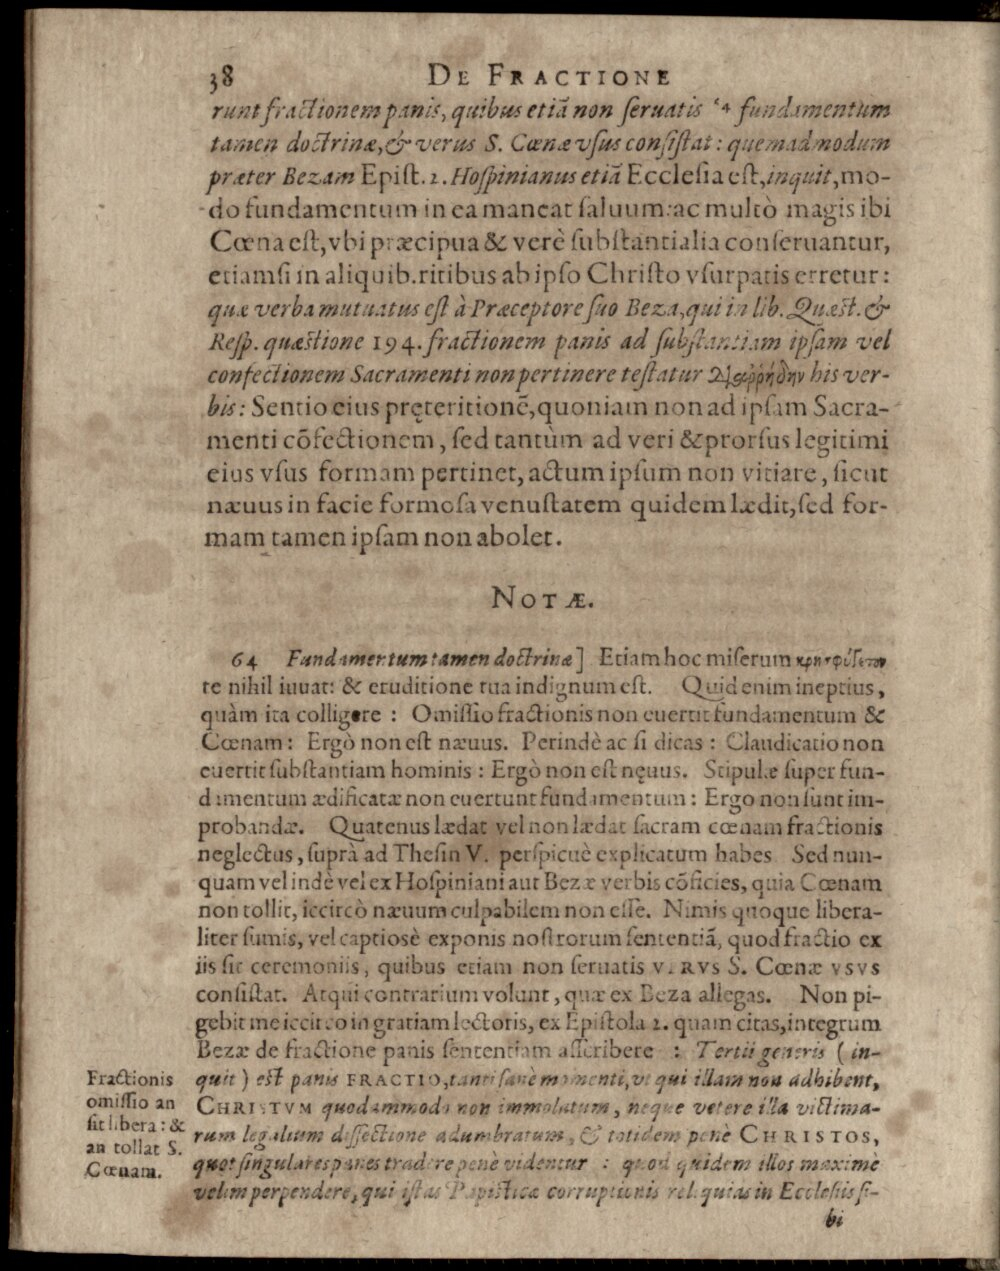 38 DE FRACTIONE
runt fractionem panis, quibus etiã non ſeruatis 64 fundamentum
tamen doctrinæ, & verus S. Cœnæ vſus conſiſtat: quemadmodum
præter Bezam Epiſt. 2. Hoſpinianus etiã Eccleſia eſt, inquit, mo-
do fundamentum in ea maneat ſaluum: ac multò magis ibi
Cœna eſt, vbi præcipua & verè ſubſtantialia conſeruantur,
etiamſi in aliquib. ritibus ab ipſo Chriſto vſurpatis erretur:
quæ verba mutuatus eſt à Præceptore ſuo Beza, qui in lib. Quæſt. &
Reſp. quæſtione 194. fractionem panis ad ſubſtantiam ipſam vel
confectionem Sacramenti non pertinere teſtatur διαῤῥήδην his ver-
bis: Sentio eius pręteritionẽ, quoniam non ad ipſam Sacra-
menti cõfectionem, ſed tantùm ad veri & prorſus legitimi
eius vſus formam pertinet, actum ipſum non vitiare, ſicut
nævus in facie formoſa venuſtatem quidem lædit, ſed for-
mam tamen ipſam non abolet.
NOTÆ.
64 Fundamentum tamen doctrinæ] Etiam hoc miſerum κρησφύγετον
te nihil iuuat: & eruditione tua indignum eſt. Quid enim ineptius,
quàm ita colligere: Omiſſio fractionis non euertit fundamentum &
Cœnam: Ergò non eſt nævus. Perindè ac ſi dicas: Claudicatio non
euertit ſubſtantiam hominis: Ergò non eſt nęuus. Stipulæ ſuper fun-
damentum ædificatæ non euertunt fundamentum: Ergo non ſunt im-
probandæ. Quatenus lædat vel non lædat ſacram cœnam fractionis
neglectus, ſuprà ad Theſin V. perſpicuè explicatum habes Sed nun-
quam vel indè vel ex Hoſpiniani aut Bezæ verbis cõficies, quia Cœnam
non tollit, iccircò nævum culpabilem non eſſe. Nimis quoque libera-
liter ſumis, vel captiosè exponis noſtrorum ſententiã, quod fractio ex
iis ſit ceremoniis, quibus etiam non ſeruatis VERVS S. Cœnæ VSVS
conſiſtat. Atqui contrarium volunt, quæ ex Beza allegas. Non pi-
gebit me iccirco in gratiam lectoris, ex Epiſtola 2. quam citas, integrum
Bezæ de fractione panis ſententiam aſſcribere: Tertii generis (in-
quit) eſt panis FRACTIO, tanti ſanè momenti, vt qui illam non adhibent,
CHRISTVM quodammodo non immolatum, neque vetere illa victima-
rum legalium diſſectione adumbratum, & totidem penè CHRISTOS,
quot ſingulares panes tradere penè videntur: quod quidem illos maximè
velim perpendere, qui iſtas Papiſticæ corruptionis reliquias in Eccleſiis ſi-
bi
Fractionis
omiſſio an
ſit libera: &
an tollat S.
Cœnam.